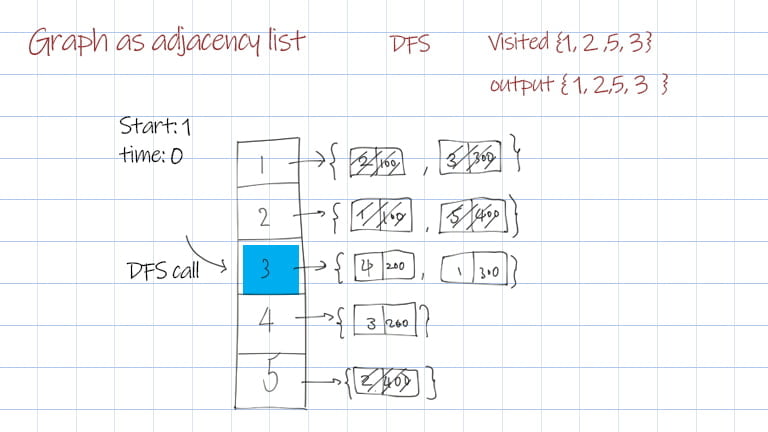 Graph as adjacency list
DFS
Visited {1, 2, 5, 3}
output { 1, 2,5, 3 }
Start: 1
time: 0
1 → { 2/100 , 3/300 }
2 → { 1/100 , 5/400 }
DFS call
3 → { 4 200 , 1 300 }
4 → { 3 200 }
5 → { 2/400 }